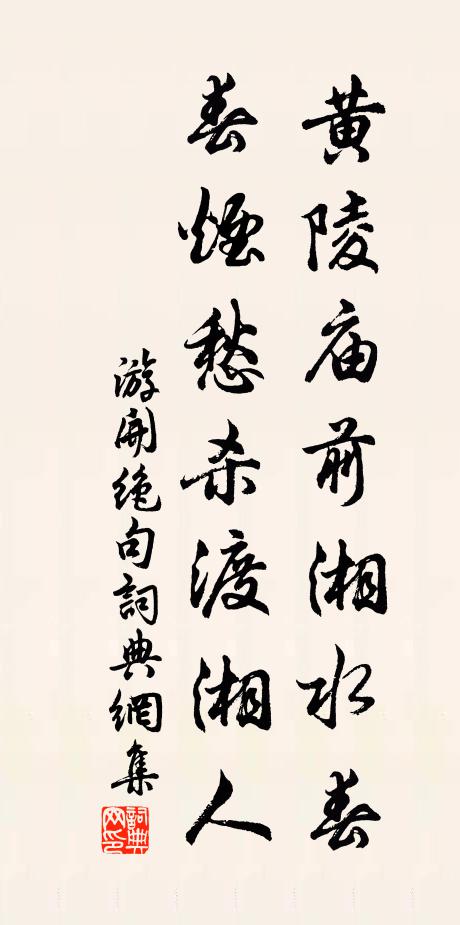 黄陵庙前湘水春
春煙愁杀渡湘人
游開绝句詞典網集
詞典网印